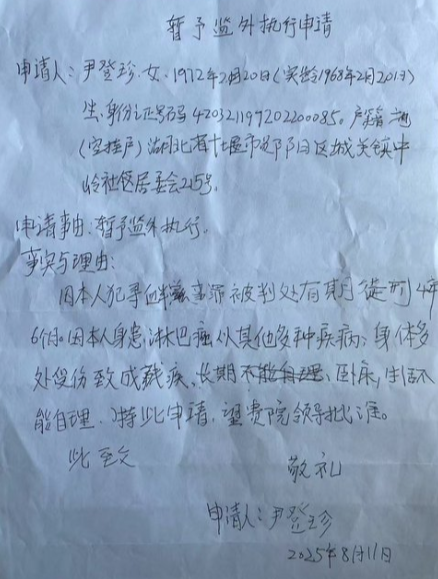 暂予监外执行申请
申请人:尹登珍.女.1972年2月20日(实龄1968年2月20日)
生.身份证号码420321197202200085。户籍
(空挂户)湖北省十堰市郧阳区城关镇中
岭社区居委会225号.
申请事由.暂予监外执行.
事实与理由:
因本人犯寻衅滋事罪被判处有期徒刑4年
6个月.因本人身患淋巴癌以其他多种疾病;身体多
处受伤致成残疾、长期卧床,生活不
能自理.特此申请,望贵院领导批准。
此致
敬礼
申请人:尹登珍
2025年8月11日